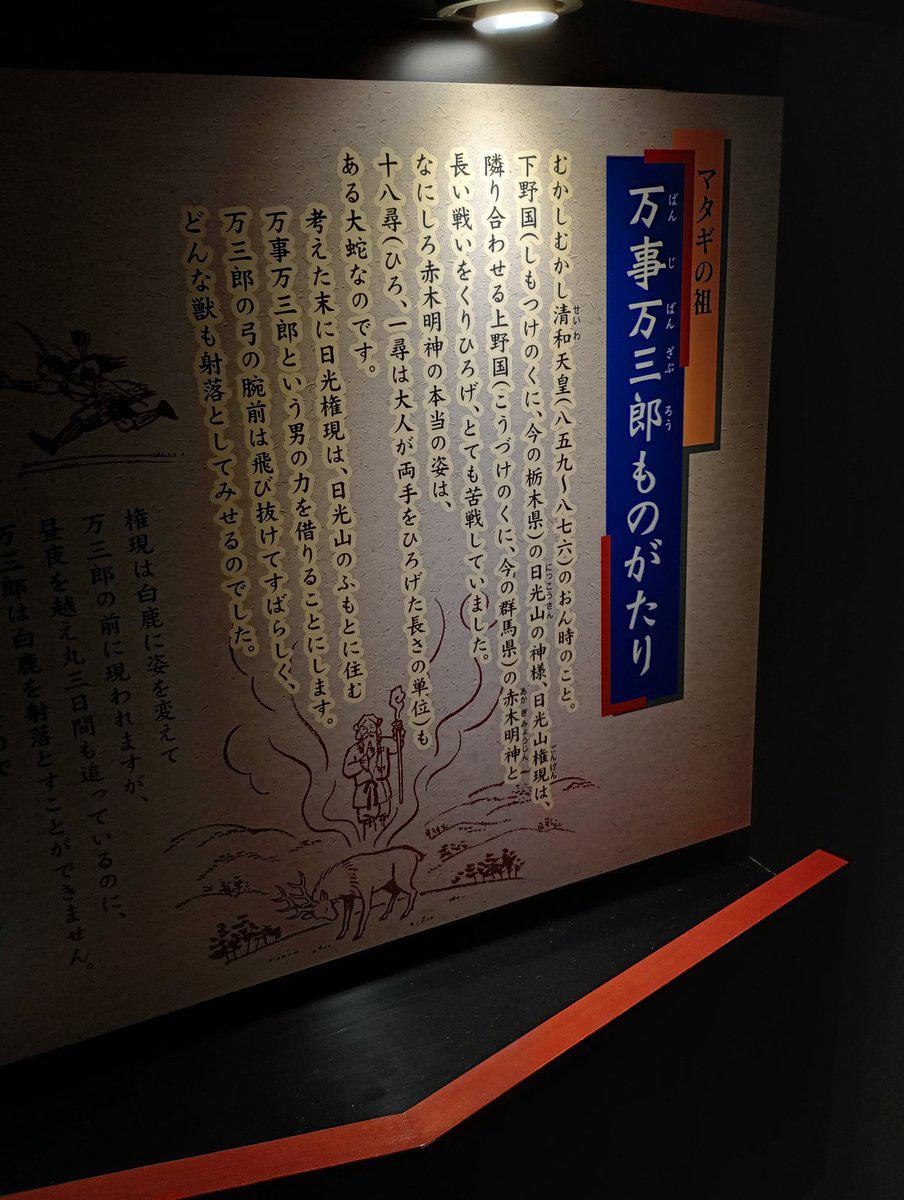 マタギの祖
万事万三郎ものがたり
ばんじばんざぶろう
むかしむかし清和天皇(八五九〜八七六)のおん時のこと。
せいわ
下野国(しもつけのくに、今の栃木県)の日光山の神様、日光山権現は、
にっこうさん
ごんげん
隣り合わせる上野国(こうづけのくに、今の群馬県)の赤木明神と
あかぎみょうじん
長い戦いをくりひろげ、とても苦戦していました。
なにしろ赤木明神の本当の姿は、
十八尋(ひろ、一尋は大人が両手をひろげた長さの単位)も
ある大蛇なのです。
考えた末に日光権現は、日光山のふもとに住む
万事万三郎という男の力を借りることにします。
万三郎の弓の腕前は飛び抜けてすばらしく、
どんな獣も射落としてみせるのでした。
権現は白鹿に姿を変えて
万三郎の前に現われますが、
昼夜を越え丸三日間も追っているのに、
万三郎は白鹿を射落とすことができません。